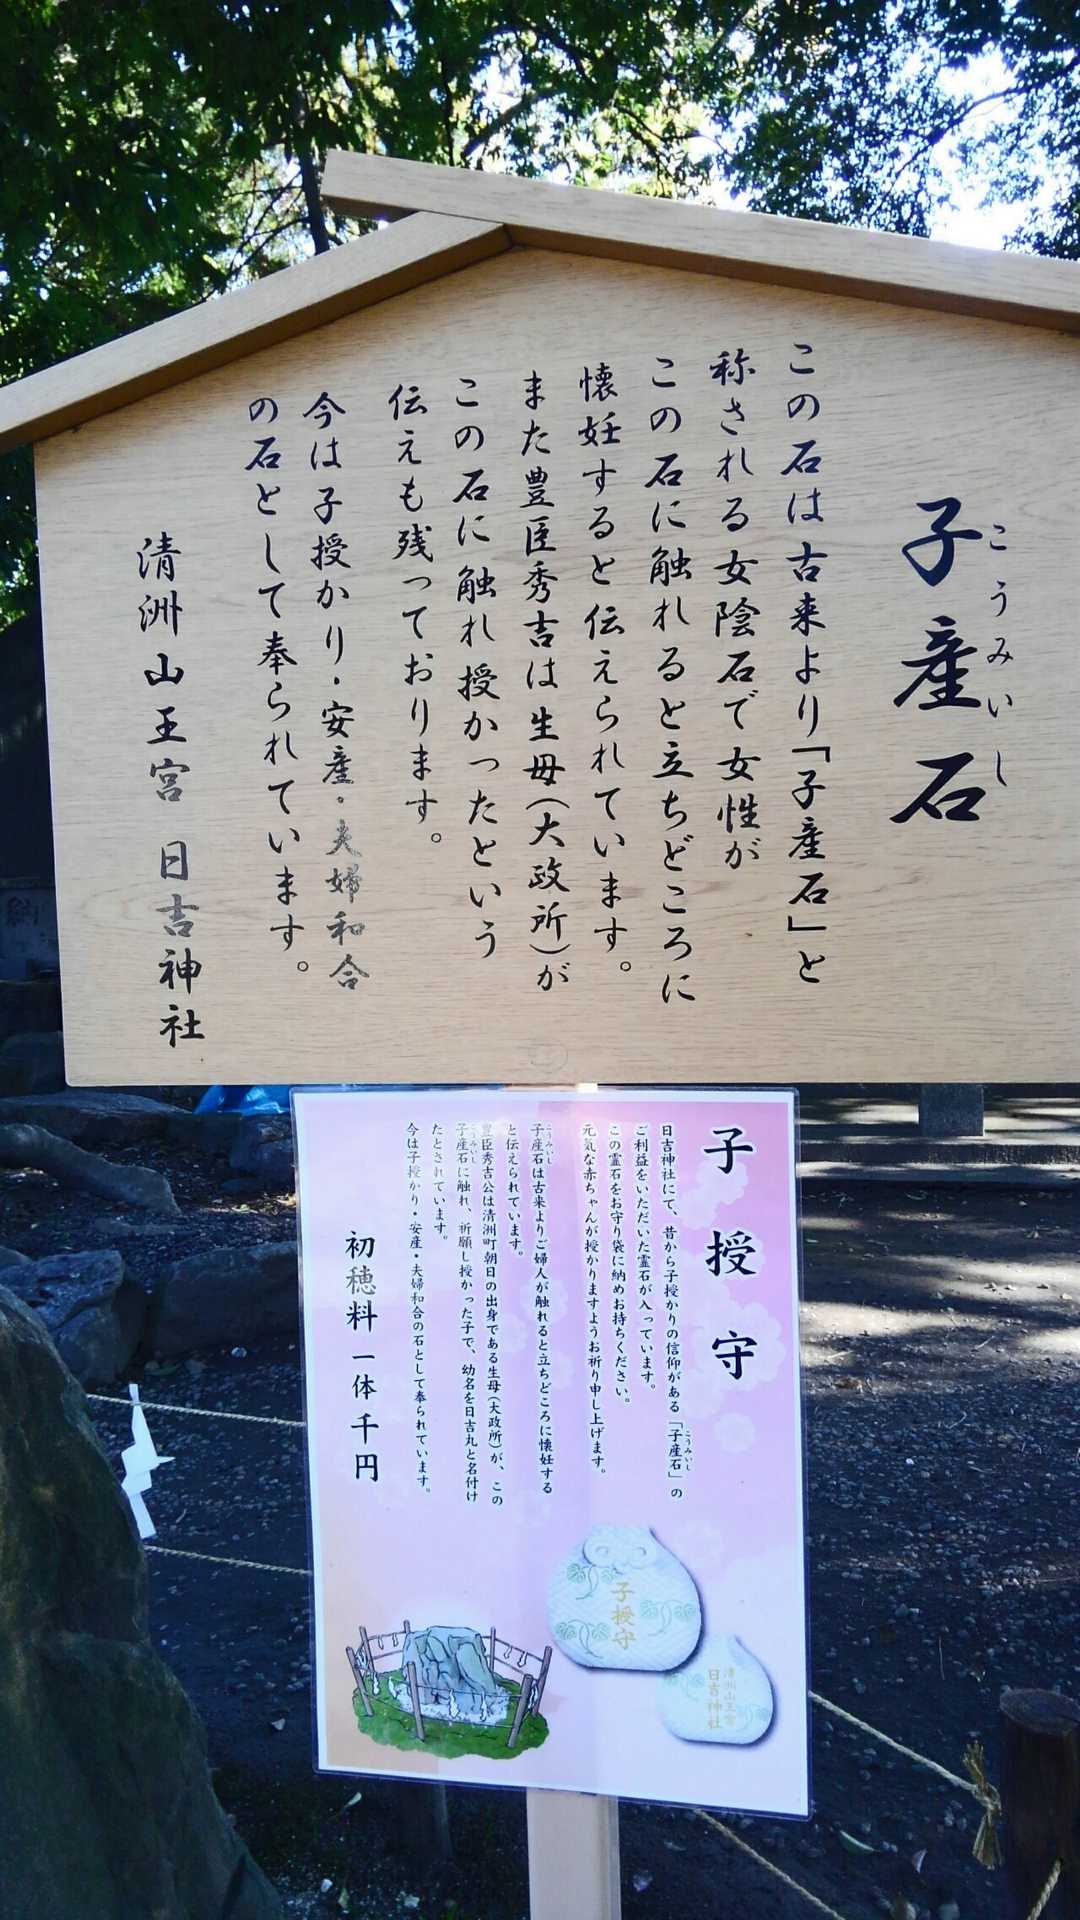 子産石
こうみいし
この石は古来より「子産石」と
称される女陰石で女性が
この石に触れると立ちどころに
懐妊すると伝えられています。
また豊臣秀吉は生母(大政所)が
この石に触れ授かったという
伝えも残っております。
今は子授かり・安産・夫婦和合
の石として奉られています。
清洲山王宮 日吉神社
子授守
日吉神社にて、昔から子授かりの信仰がある「子産石」の
こうみいし
ご利益をいただいた霊石が入っています。
この霊石をお守り袋に納めお持ちください。
元気な赤ちゃんが授かりますようお祈り申し上げます。
子産石は古来よりご婦人が触れると立ちどころに懐妊する
こうみいし
と伝えられています。
豊臣秀吉公は清洲町朝日の出身である生母(大政所)が、この
子産石に触れ、祈願し授かった子で、幼名を日吉丸と名付け
こうみいし
たとされています。
今は子授かり・安産・夫婦和合の石として奉られています。
初穂料 一体千円
子授守
清洲山王宮
日吉神社
納